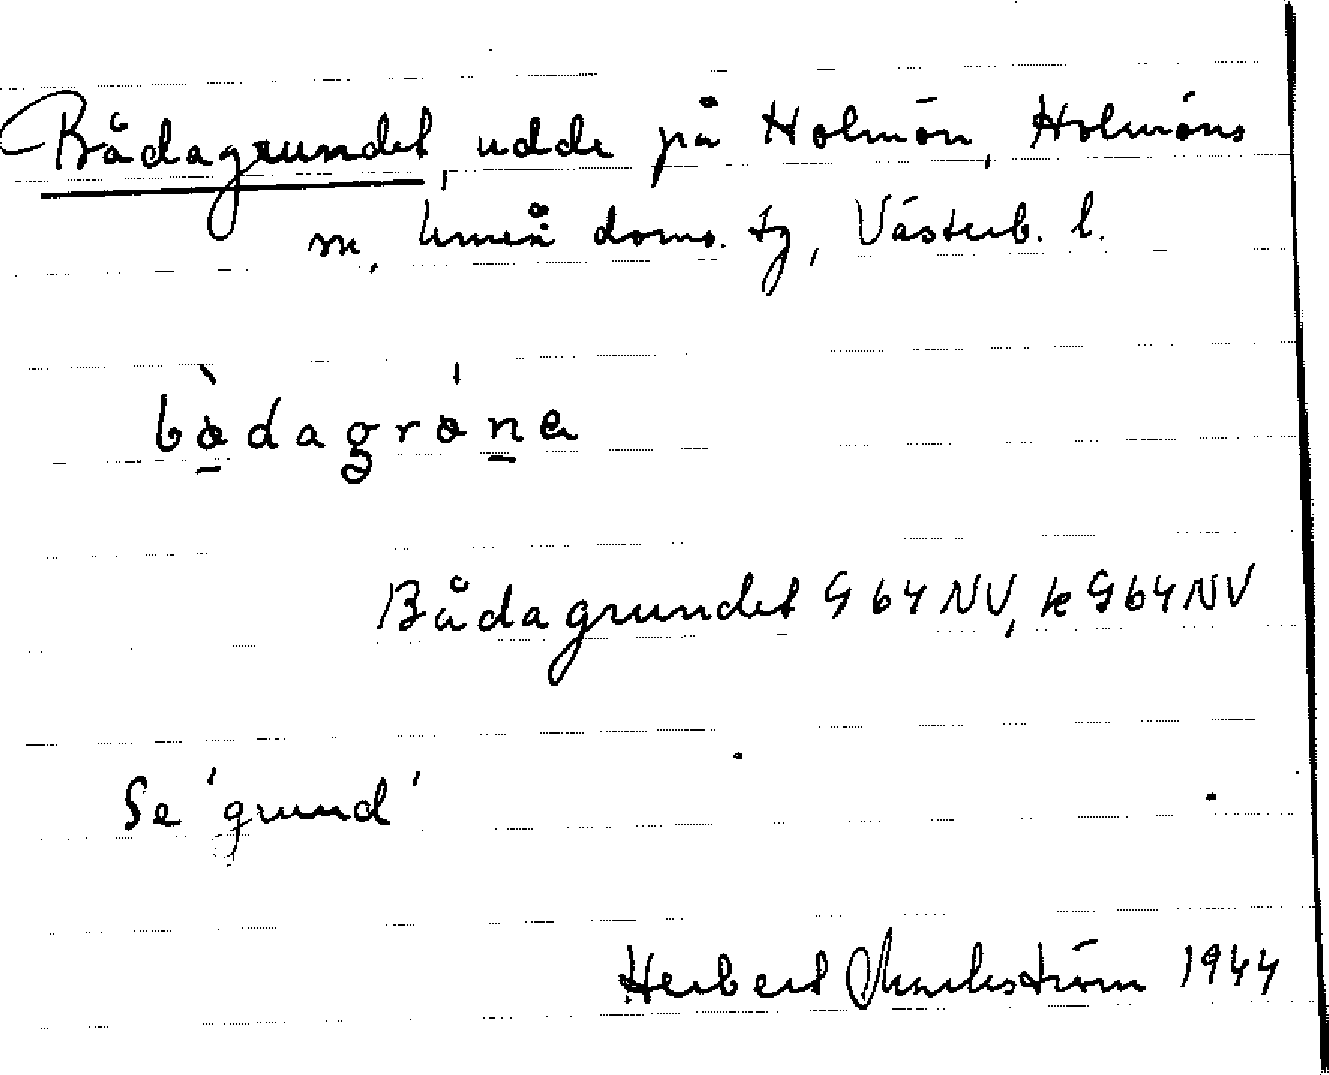 Bådagrundet, udde på Holmön, Holmöns
sn, Umeå doms. tg, Västerb. l.
bòdagrónɐ
Bådagrundet G 64 NV, k G 64 NV
Se 'grund'
Herbert Markström 1944